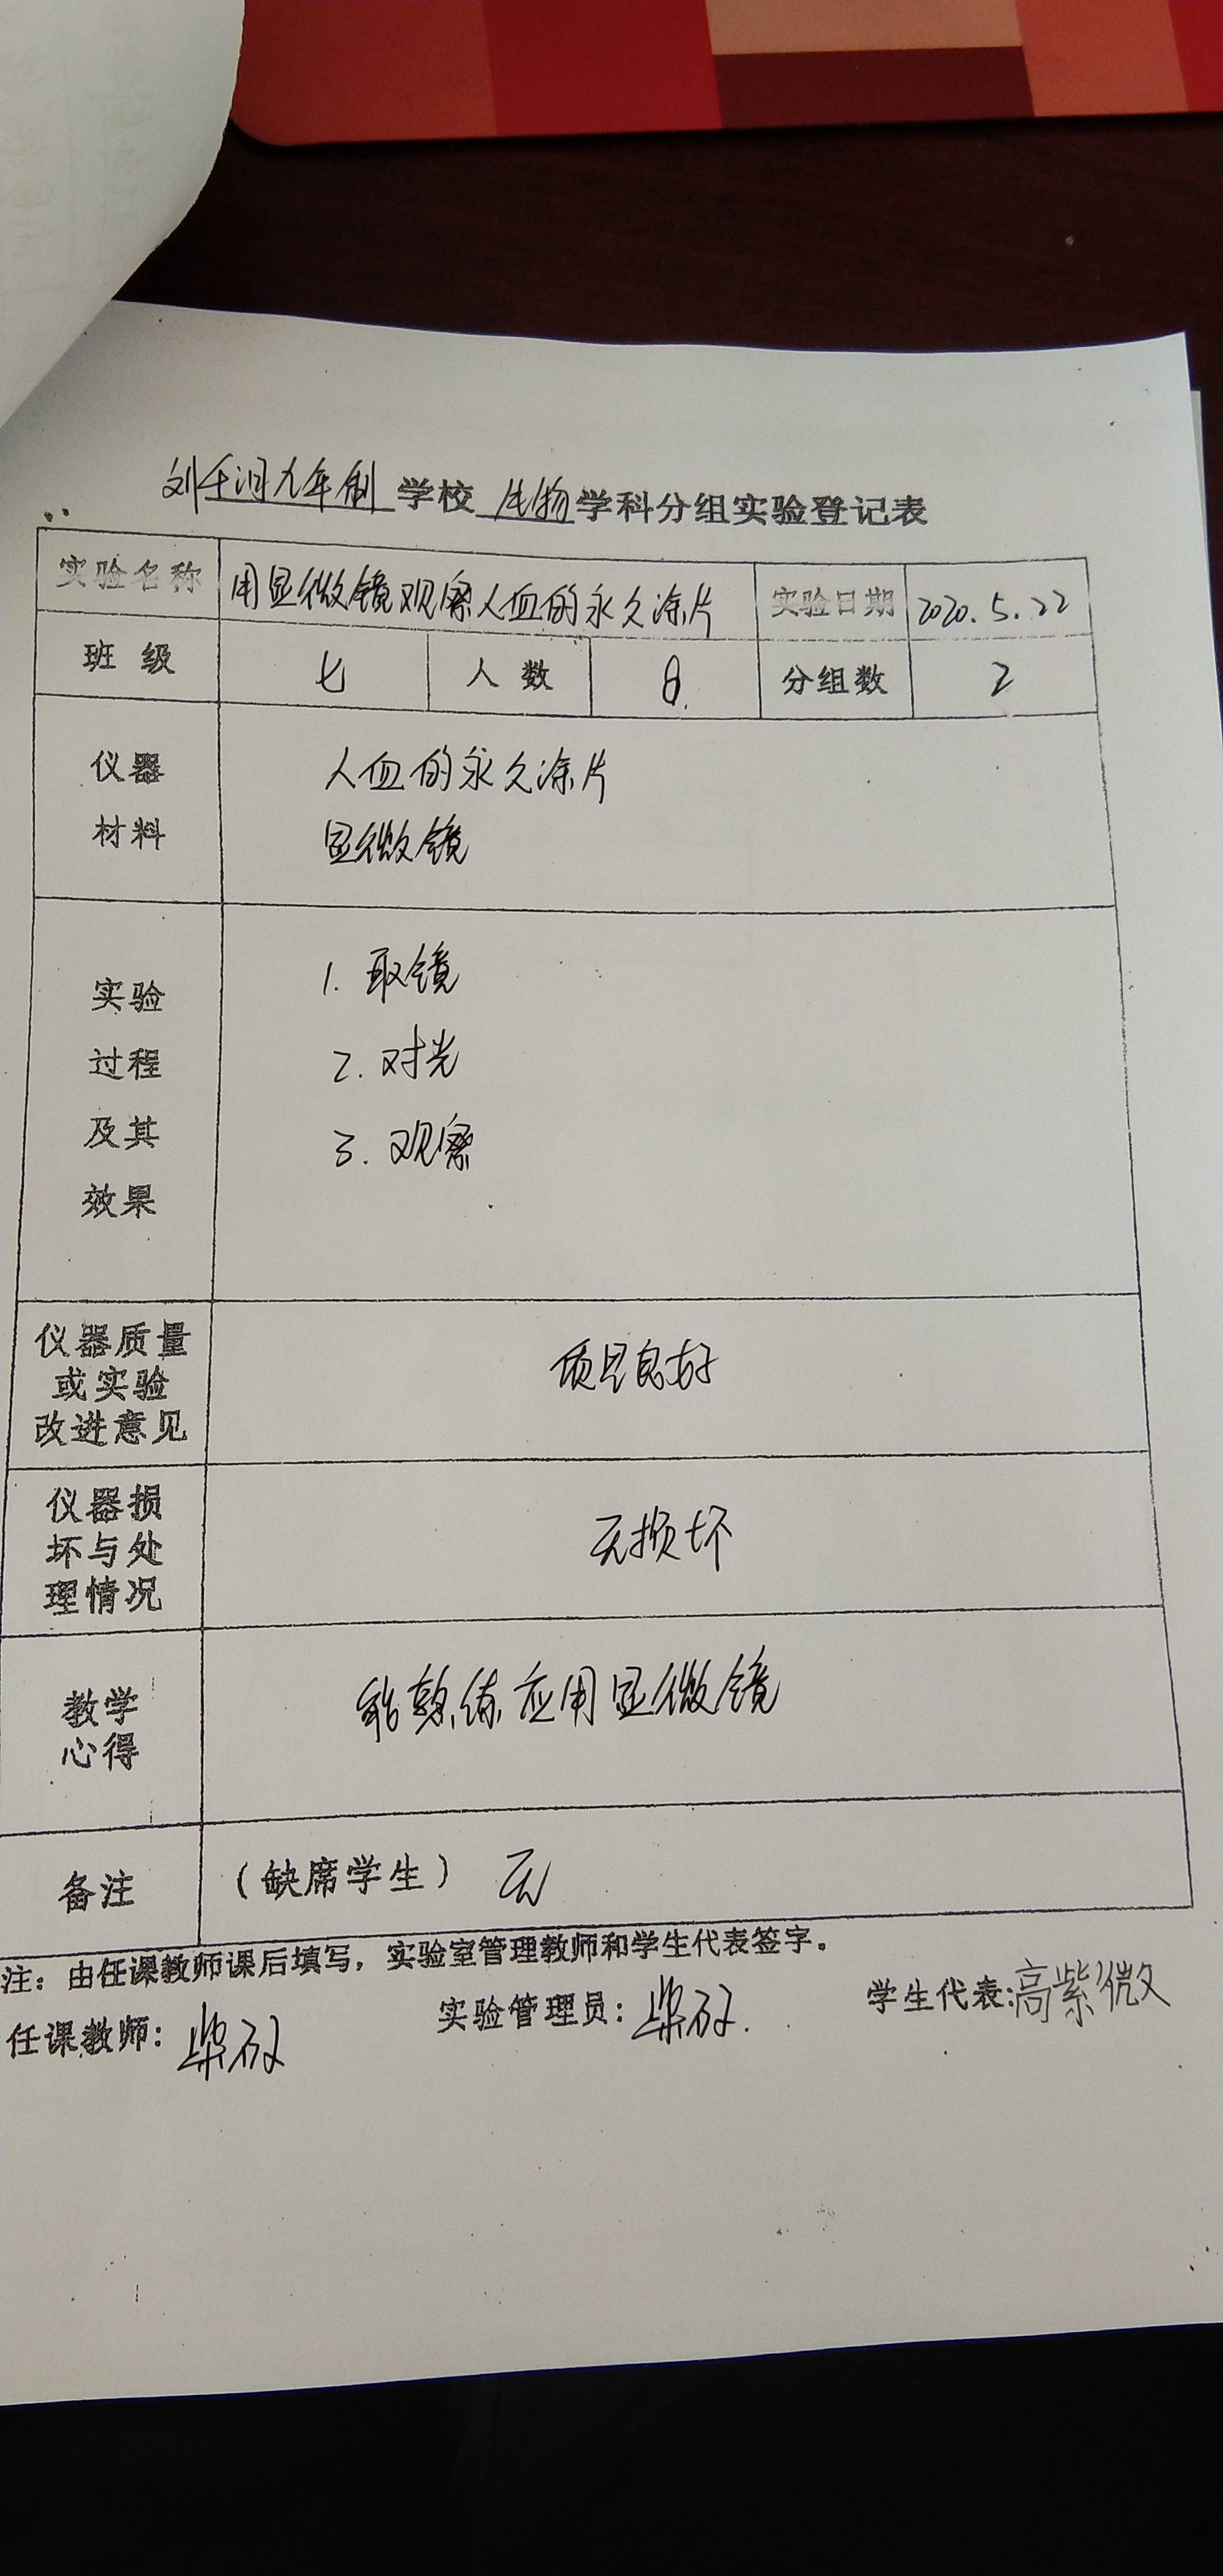 刘千泪九年制学校 生物学科分组实验登记表
实验名称 用显微镜观察人血的永久涂片 实验日期 2020.5.22
班级 七 人数 8 分组数 2
仪器
材料
人血的永久涂片
显微镜
实验
过程
及其
效果
1. 取镜
2. 对光
3. 观察
仪器质量
或实验
改进意见
质量良好
仪器损
坏与处
理情况
无损坏
教学
心得
能熟练应用显微镜
备注 (缺席学生) 无
注：由任课教师课后填写，实验室管理教师和学生代表签字。
任课教师: 实验管理员: 学生代表:高紫微